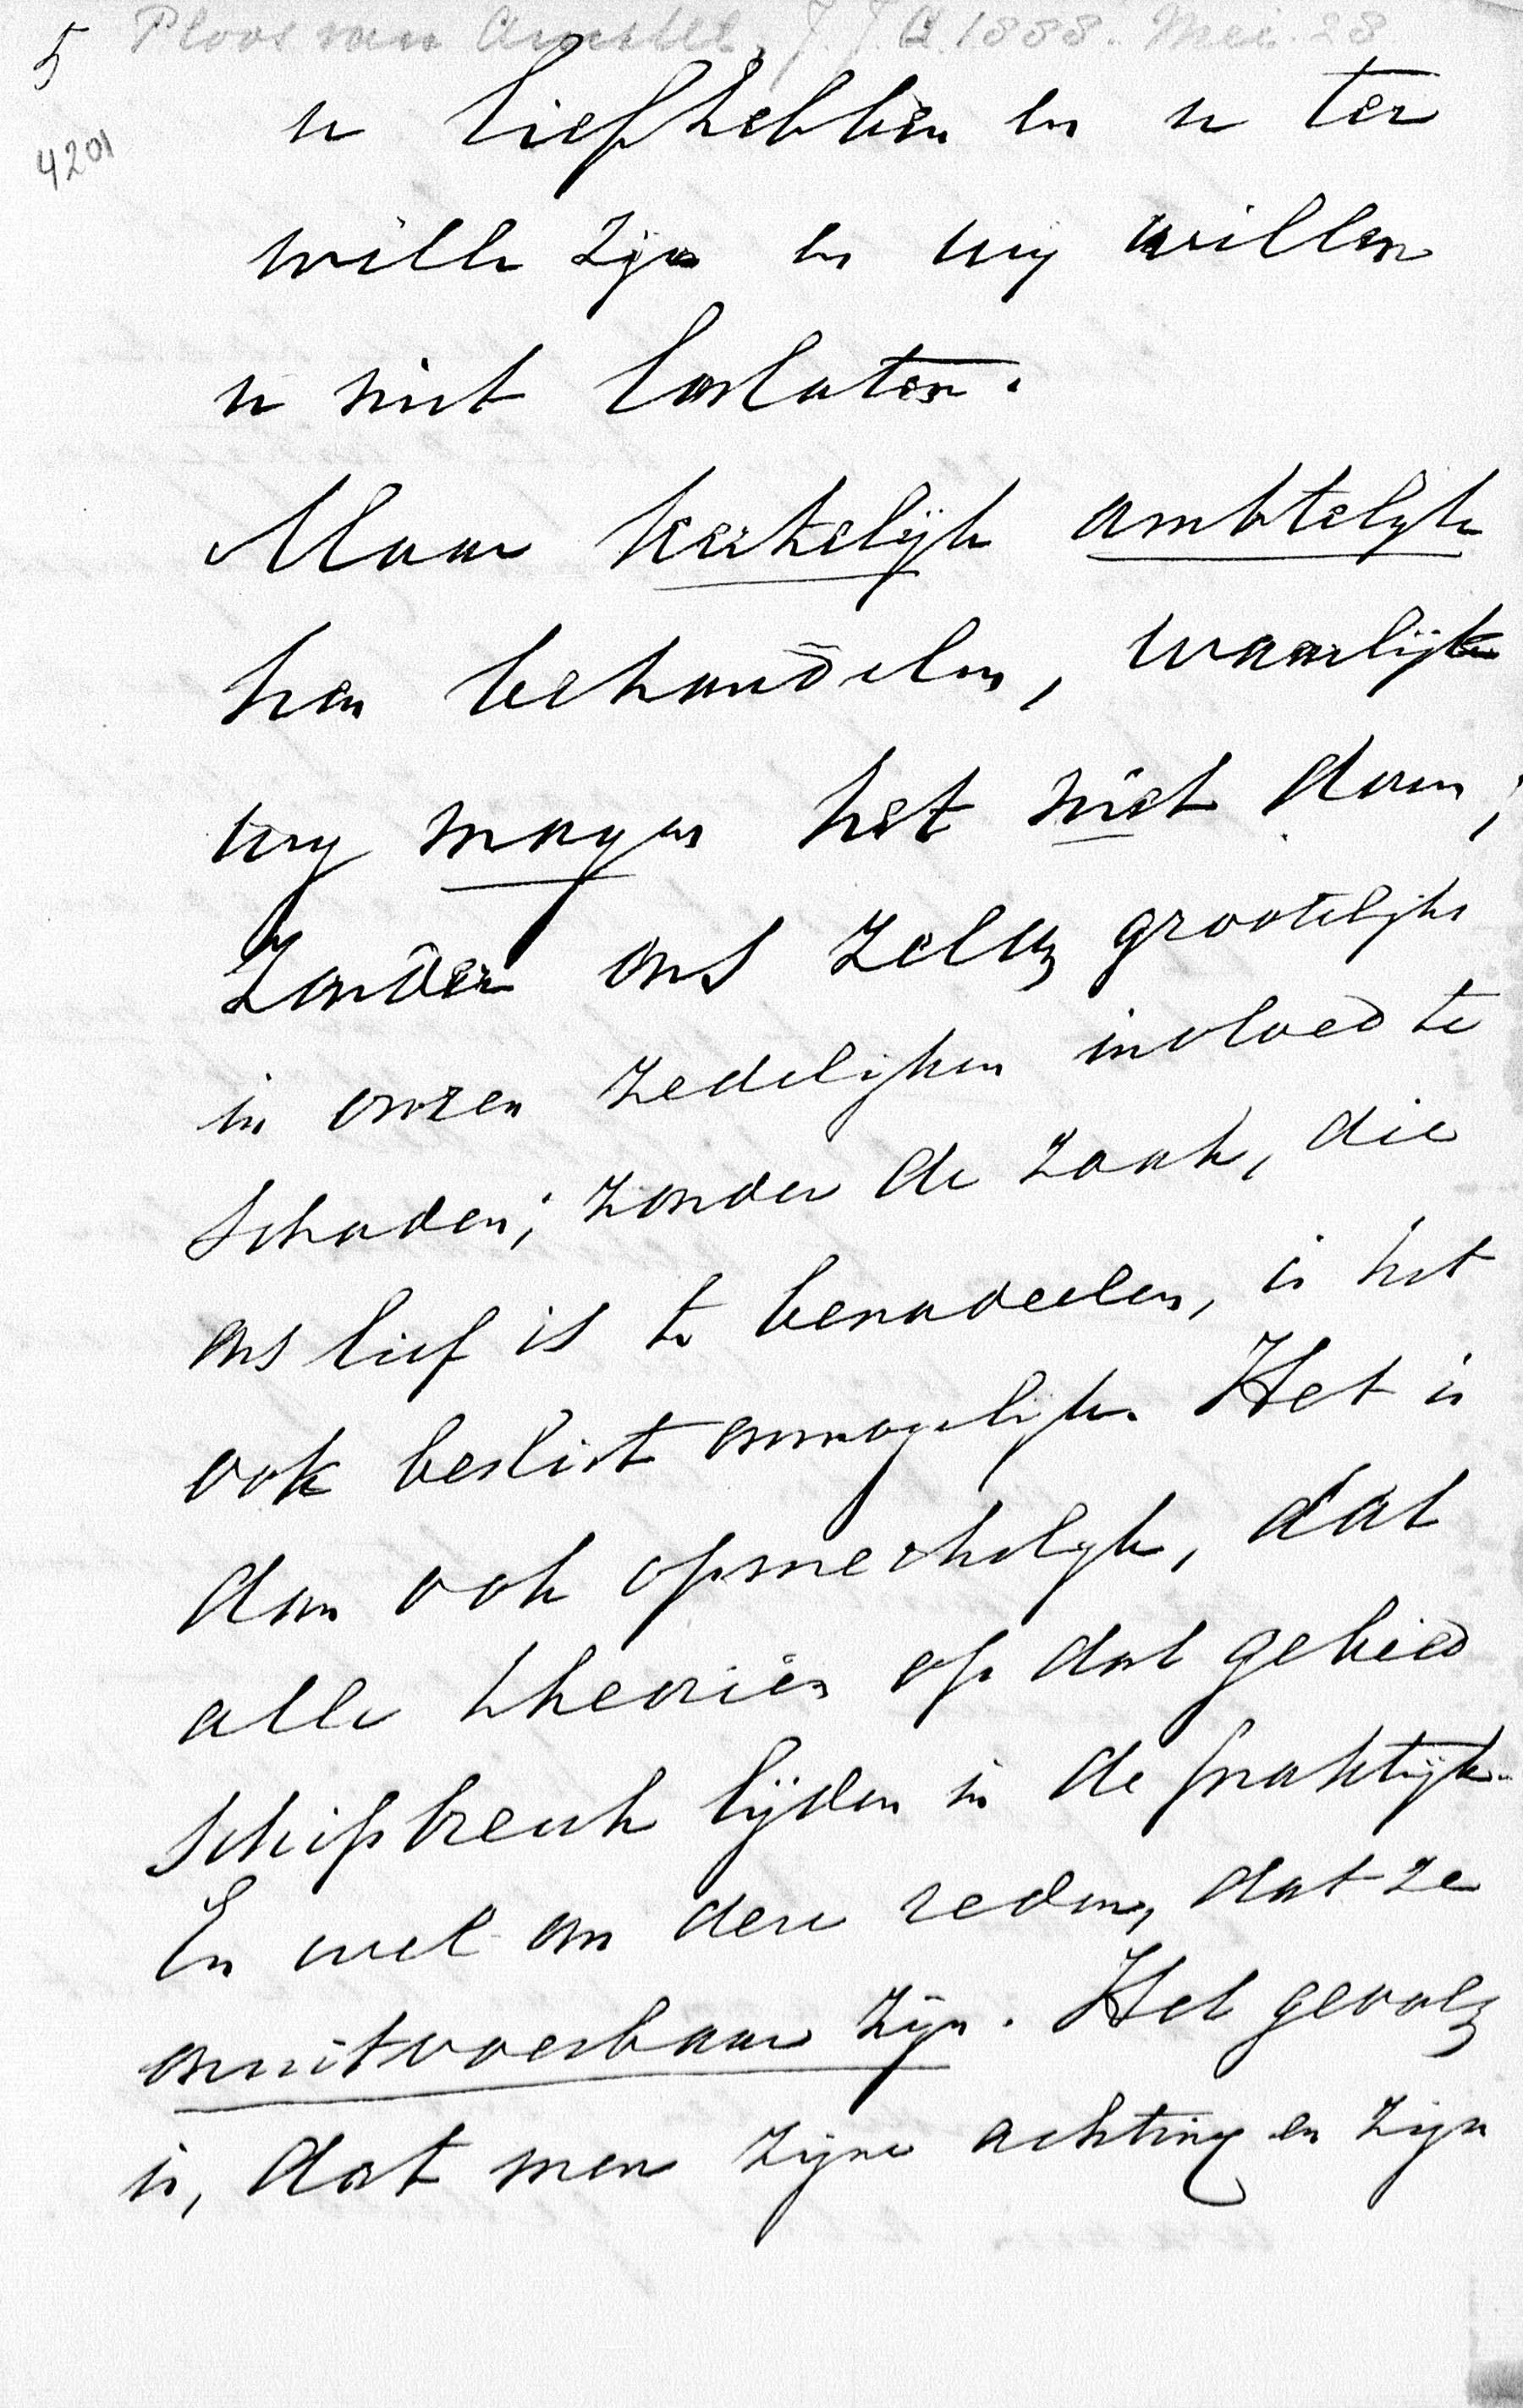 5 Ploos van Amstel, J.J.A. 1888. Mei. 28
4201
u liefhebben en u ter
wille zijn en wij willen
u niet loslaten.
Maar kerkelijk ambtelijk
hen behandelen, waarlijk
wij mogen het niet doen;
Zonder ons zelve grootelijks
in onzen zedelijken invloed te
schaden; zonder de zaak, die
ons lief is te benadeelen, is het
ook beslist onmogelijk. Het is
dan ook opmerkelijk, dat
alle theoriën op dat gebied
schipbreuk lijden in de praktijk.
En wel om deze reden, dat ze
onuitvoerbaar zijn. Het gevolg
is, dat men zijne achting en zijn